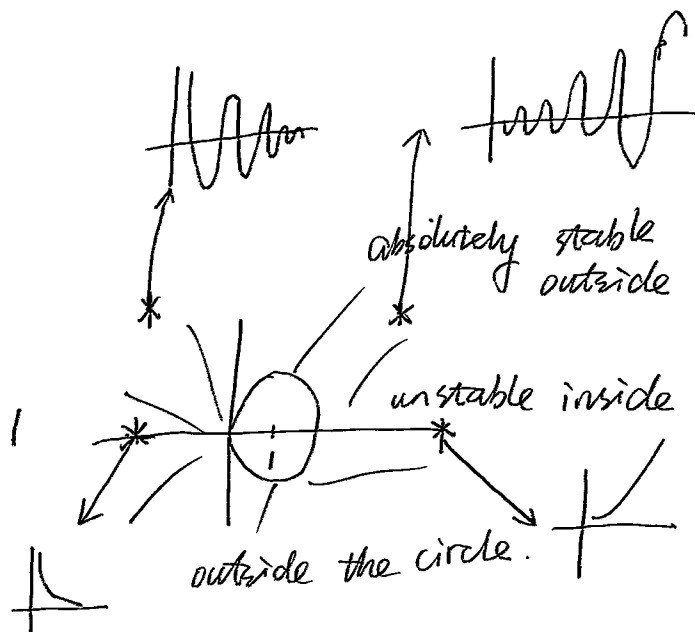 absolutely stable
outside
unstable inside
1
outside the circle.